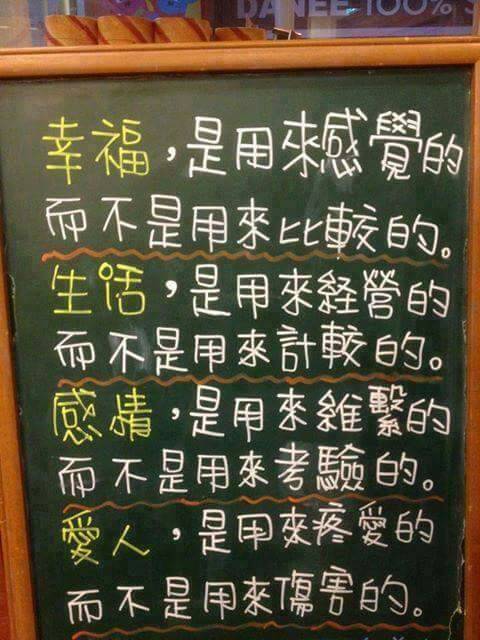 DANEE 100% S
幸福,是用來感覺的
而不是用來比較的。
生活,是用來経營的
而不是用來計較的。
感情,是用來維繫的
而不是用來考驗的。
愛人,是用來疼愛的
而不是用來傷害的。